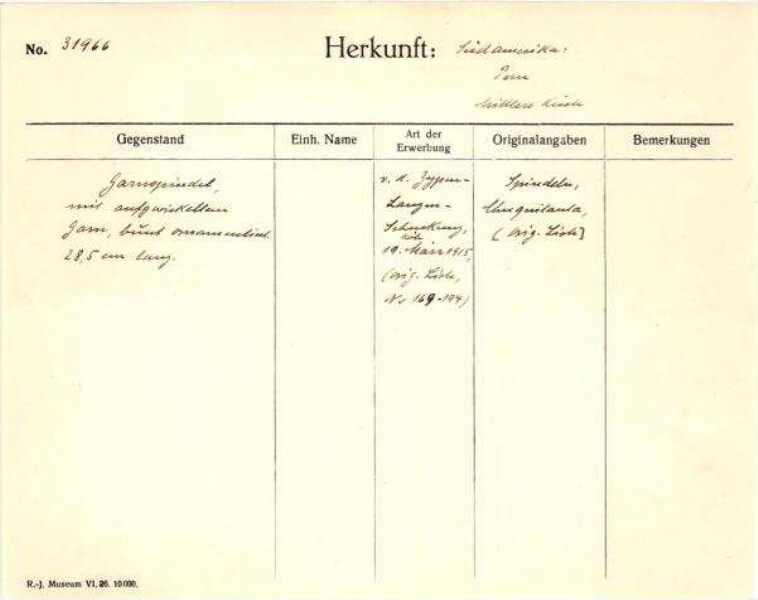 No. 31966
Herkunft: Südamerika:
Peru
Mittlere Küste
Gegenstand
Einh. Name
Art der Erwerbung
Originalangaben
Bemerkungen
Garnspindel,
mit aufgewickeltem
Garn, bunt ornamentiert.
28,5 cm lang.
v. d. Zypen-
Langen-
Schenkung,
Köln
19. März 1915,
(orig. Liste,
Nr 169-194)
Spindeln,
Chuquitanta,
[orig. Liste]
R.-J. Museum VI. 26. 10000.